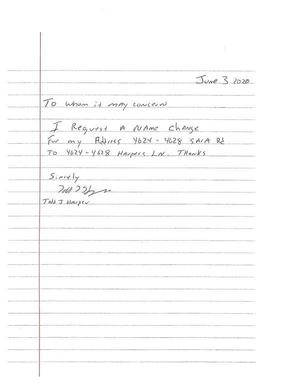 June 3 2020
To whom it may concern
I Request A Name Change
For my Address 4624-4628 SALA Rd
To 4624-4628 Harpers Ln. Thanks
Sincrely
Todd J Harper